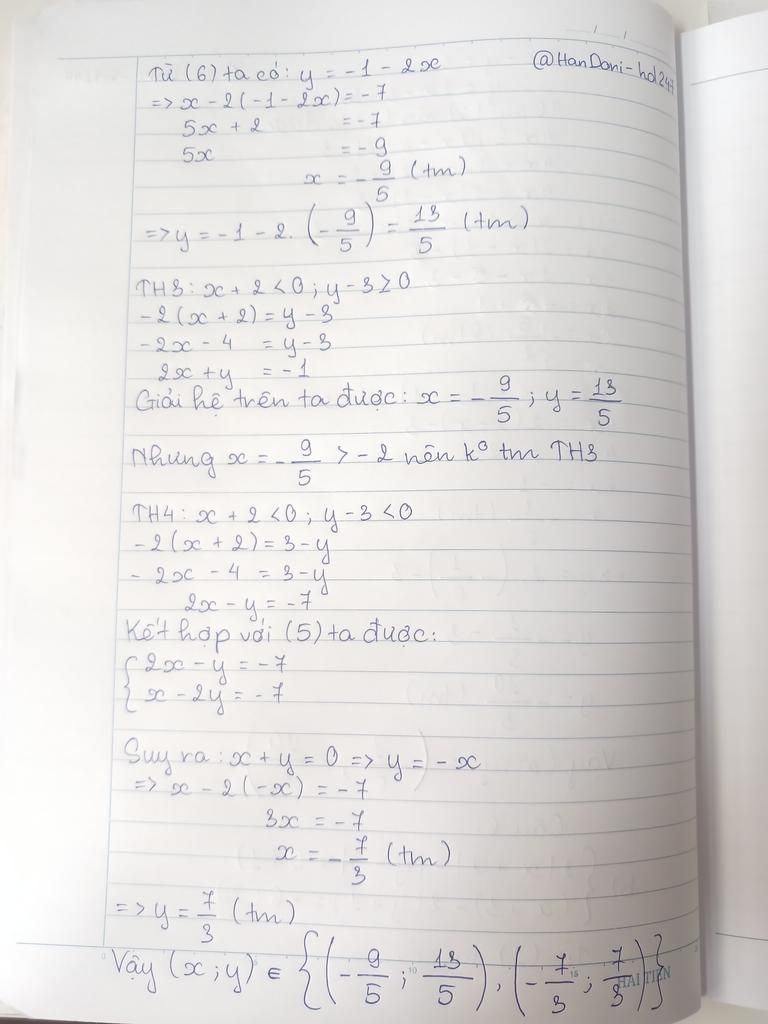 Từ (6) ta có: y = -1 - 2x
@HanDoni-hd247
=> x - 2(-1 - 2x) = -7
5x + 2 = -7
5x = -9
x = -9/5 (tm)
=> y = -1 - 2. (-9/5) = 13/5 (tm)
TH3: x + 2 < 0; y - 3 ≥ 0
-2(x + 2) = y - 3
-2x - 4 = y - 3
2x + y = -1
Giải hệ trên ta được: x = -9/5; y = 13/5
Nhưng x = -9/5 > -2 nên k° tm TH3
TH4: x + 2 < 0; y - 3 < 0
-2(x + 2) = 3 - y
- 2x - 4 = 3 - y
2x - y = -7
Kết hợp với (5) ta được:
{ 2x - y = -7
x - 2y = -7
Suy ra: x + y = 0 => y = -x
=> x - 2(-x) = -7
3x = -7
x = -7/3 (tm)
=> y = 7/3 (tm)
Vậy (x; y) ∈ {(-9/5; 13/5), (-7/3; 7/3)}
HẢI TIẾN